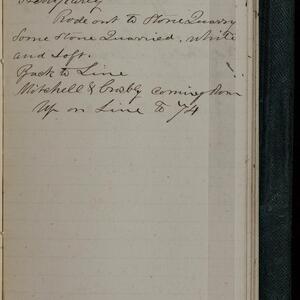 Rode out to Stone Quarry
Some Stone Quarried, white
and soft.
Back to Line
Mitchell & Crosby coming down
Up on Line to 74